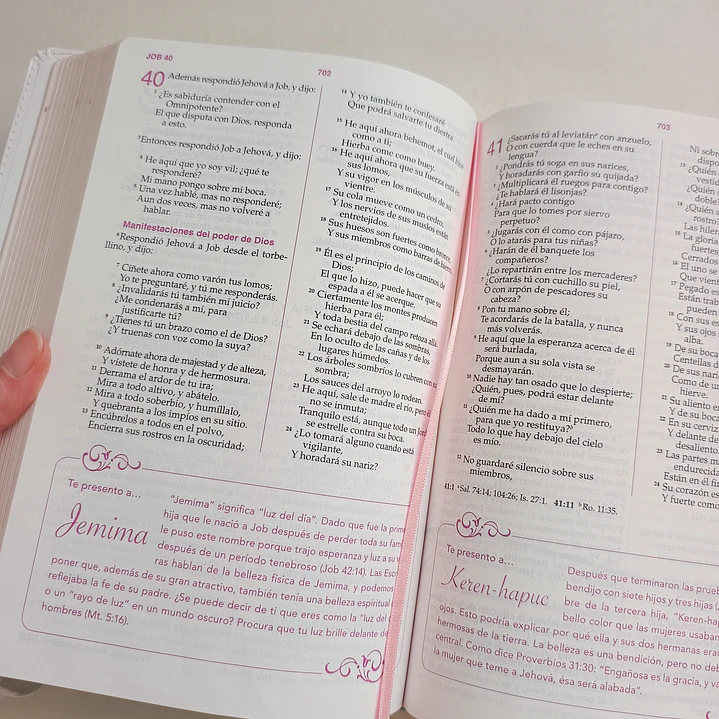 JOB 40
702
40 Además respondió Jehová a Job, y dijo:
2 ¿Es sabiduría contender con el
Omnipotente?
El que disputa con Dios, responda
a esto.
3 Entonces respondió Job a Jehová, y dijo:
4 He aquí que yo soy vil; ¿qué te
responderé?
Mi mano pongo sobre mi boca.
5 Una vez hablé, mas no responderé;
Aun dos veces, mas no volveré a
hablar.
Manifestaciones del poder de Dios
6 Respondió Jehová a Job desde el torbe-
llino, y dijo:
7 Cíñete ahora como varón tus lomos;
Yo te preguntaré, y tú me responderás.
8 ¿Invalidarás tú también mi juicio?
¿Me condenarás a mí, para
justificarte tú?
9 ¿Tienes tú un brazo como el de Dios?
¿Y truenas con voz como la suya?
10 Adórnate ahora de majestad y de alteza,
Y vístete de honra y de hermosura.
11 Derrama el ardor de tu ira;
Mira a todo altivo, y abátelo.
12 Mira a todo soberbio, y humíllalo,
Y quebranta a los impíos en su sitio.
13 Encúbrelos a todos en el polvo,
Encierra sus rostros en la oscuridad;
14 Y yo también te confesaré
Que podrá salvarte tu diestra.
15 He aquí ahora behemot, el cual hice
como a ti;
Hierba come como buey.
16 He aquí ahora que su fuerza está en
sus lomos,
Y su vigor en los músculos de su
vientre.
17 Su cola mueve como un cedro,
Y los nervios de sus muslos están
entretejidos.
18 Sus huesos son fuertes como bronce,
Y sus miembros como barras de hierro.
19 Él es el principio de los caminos de
Dios;
El que lo hizo, puede hacer que su
espada a él se acerque.
20 Ciertamente los montes producen
hierba para él;
Y toda bestia del campo retoza allá.
21 Se echará debajo de las sombras,
En lo oculto de las cañas y de los
lugares húmedos.
22 Los árboles sombríos lo cubren con su
sombra;
Los sauces del arroyo lo rodean.
23 He aquí, sale de madre el río, pero él
no se inmuta;
Tranquilo está, aunque todo un Jord
se estrelle contra su boca.
24 ¿Lo tomará alguno cuando está
vigilante,
Y horadará su nariz?
Te presento a...
Jemima
"Jemima" significa "luz del día". Dado que fue la prim
hija que le nació a Job después de perder toda su fam
le puso este nombre porque trajo esperanza y luz a su v
después de un período tenebroso (Job 42:14). Las Esc
ras hablan de la belleza física de Jemima, y podemos
poner que, además de su gran atractivo, también tenía una belleza espiritual
reflejaba la fe de su padre. ¿Se puede decir de ti que eres como la "luz del d
o un "rayo de luz" en un mundo oscuro? Procura que tu luz brille delante de
hombres (Mt. 5:16).
703
41 ¿Sacarás tú al leviatán a con anzuelo,
O con cuerda que le eches en su
lengua?
2 ¿Pondrás tú soga en sus narices,
Y horadarás con garfio su quijada?
3 ¿Multiplicará él ruegos para contigo?
¿Te hablará él lisonjas?
4 ¿Hará pacto contigo
Para que lo tomes por siervo
perpetuo?
5 ¿Jugarás con él como con pájaro,
O lo atarás para tus niñas?
6 ¿Harán de él banquete los
compañeros?
¿Lo repartirán entre los mercaderes?
7 ¿Cortarás tú con cuchillo su piel,
O con arpón de pescadores su
cabeza?
8 Pon tu mano sobre él;
Te acordarás de la batalla, y nunca
más volverás.
9 He aquí que la esperanza acerca de él
será burlada,
Porque aun a su sola vista se
desmayarán.
10 Nadie hay tan osado que lo despierte;
¿Quién, pues, podrá estar delante
de mí?
11 ¿Quién me ha dado a mí primero,
para que yo restituya? b
Todo lo que hay debajo del cielo
es mío.
12 No guardaré silencio sobre sus
miembros,
Ni sobr
dispo
13 ¿Quién
vesti
¿Quién
doble?
14 ¿Quién
rostro?
Las hiler
15 La gloria
fuertes
Cerrados
16 El uno se
Que vient
17 Pegado es
Están trab
pueden
18 Con sus es
Y sus ojos
alba.
19 De su boca
Centellas d
20 De sus nari
Como de u
hierve.
21 Su aliento e
Y de su boc
22 En su cerviz
Y delante de
desaliento.
23 Las partes m
endurecida
Están en él fi
24 Su corazón es
Y fuerte como
41:1 a Sal. 74:14; 104:26; Is. 27:1. 41:11 b Ro. 11:35.
Te presento a...
Keren-hapuc
Después que terminaron las prueb
bendijo con siete hijos y tres hijas (
bre de la tercera hija, "Keren-ha
bello color que las mujeres usaban
ojos. Esto podría explicar por qué ella y sus dos hermanas eran
hermosas de la tierra. La belleza es una bendición, pero no deb
central. Como dice Proverbios 31:30: "Engañosa es la gracia, y va
la mujer que teme a Jehová, ésa será alabada".